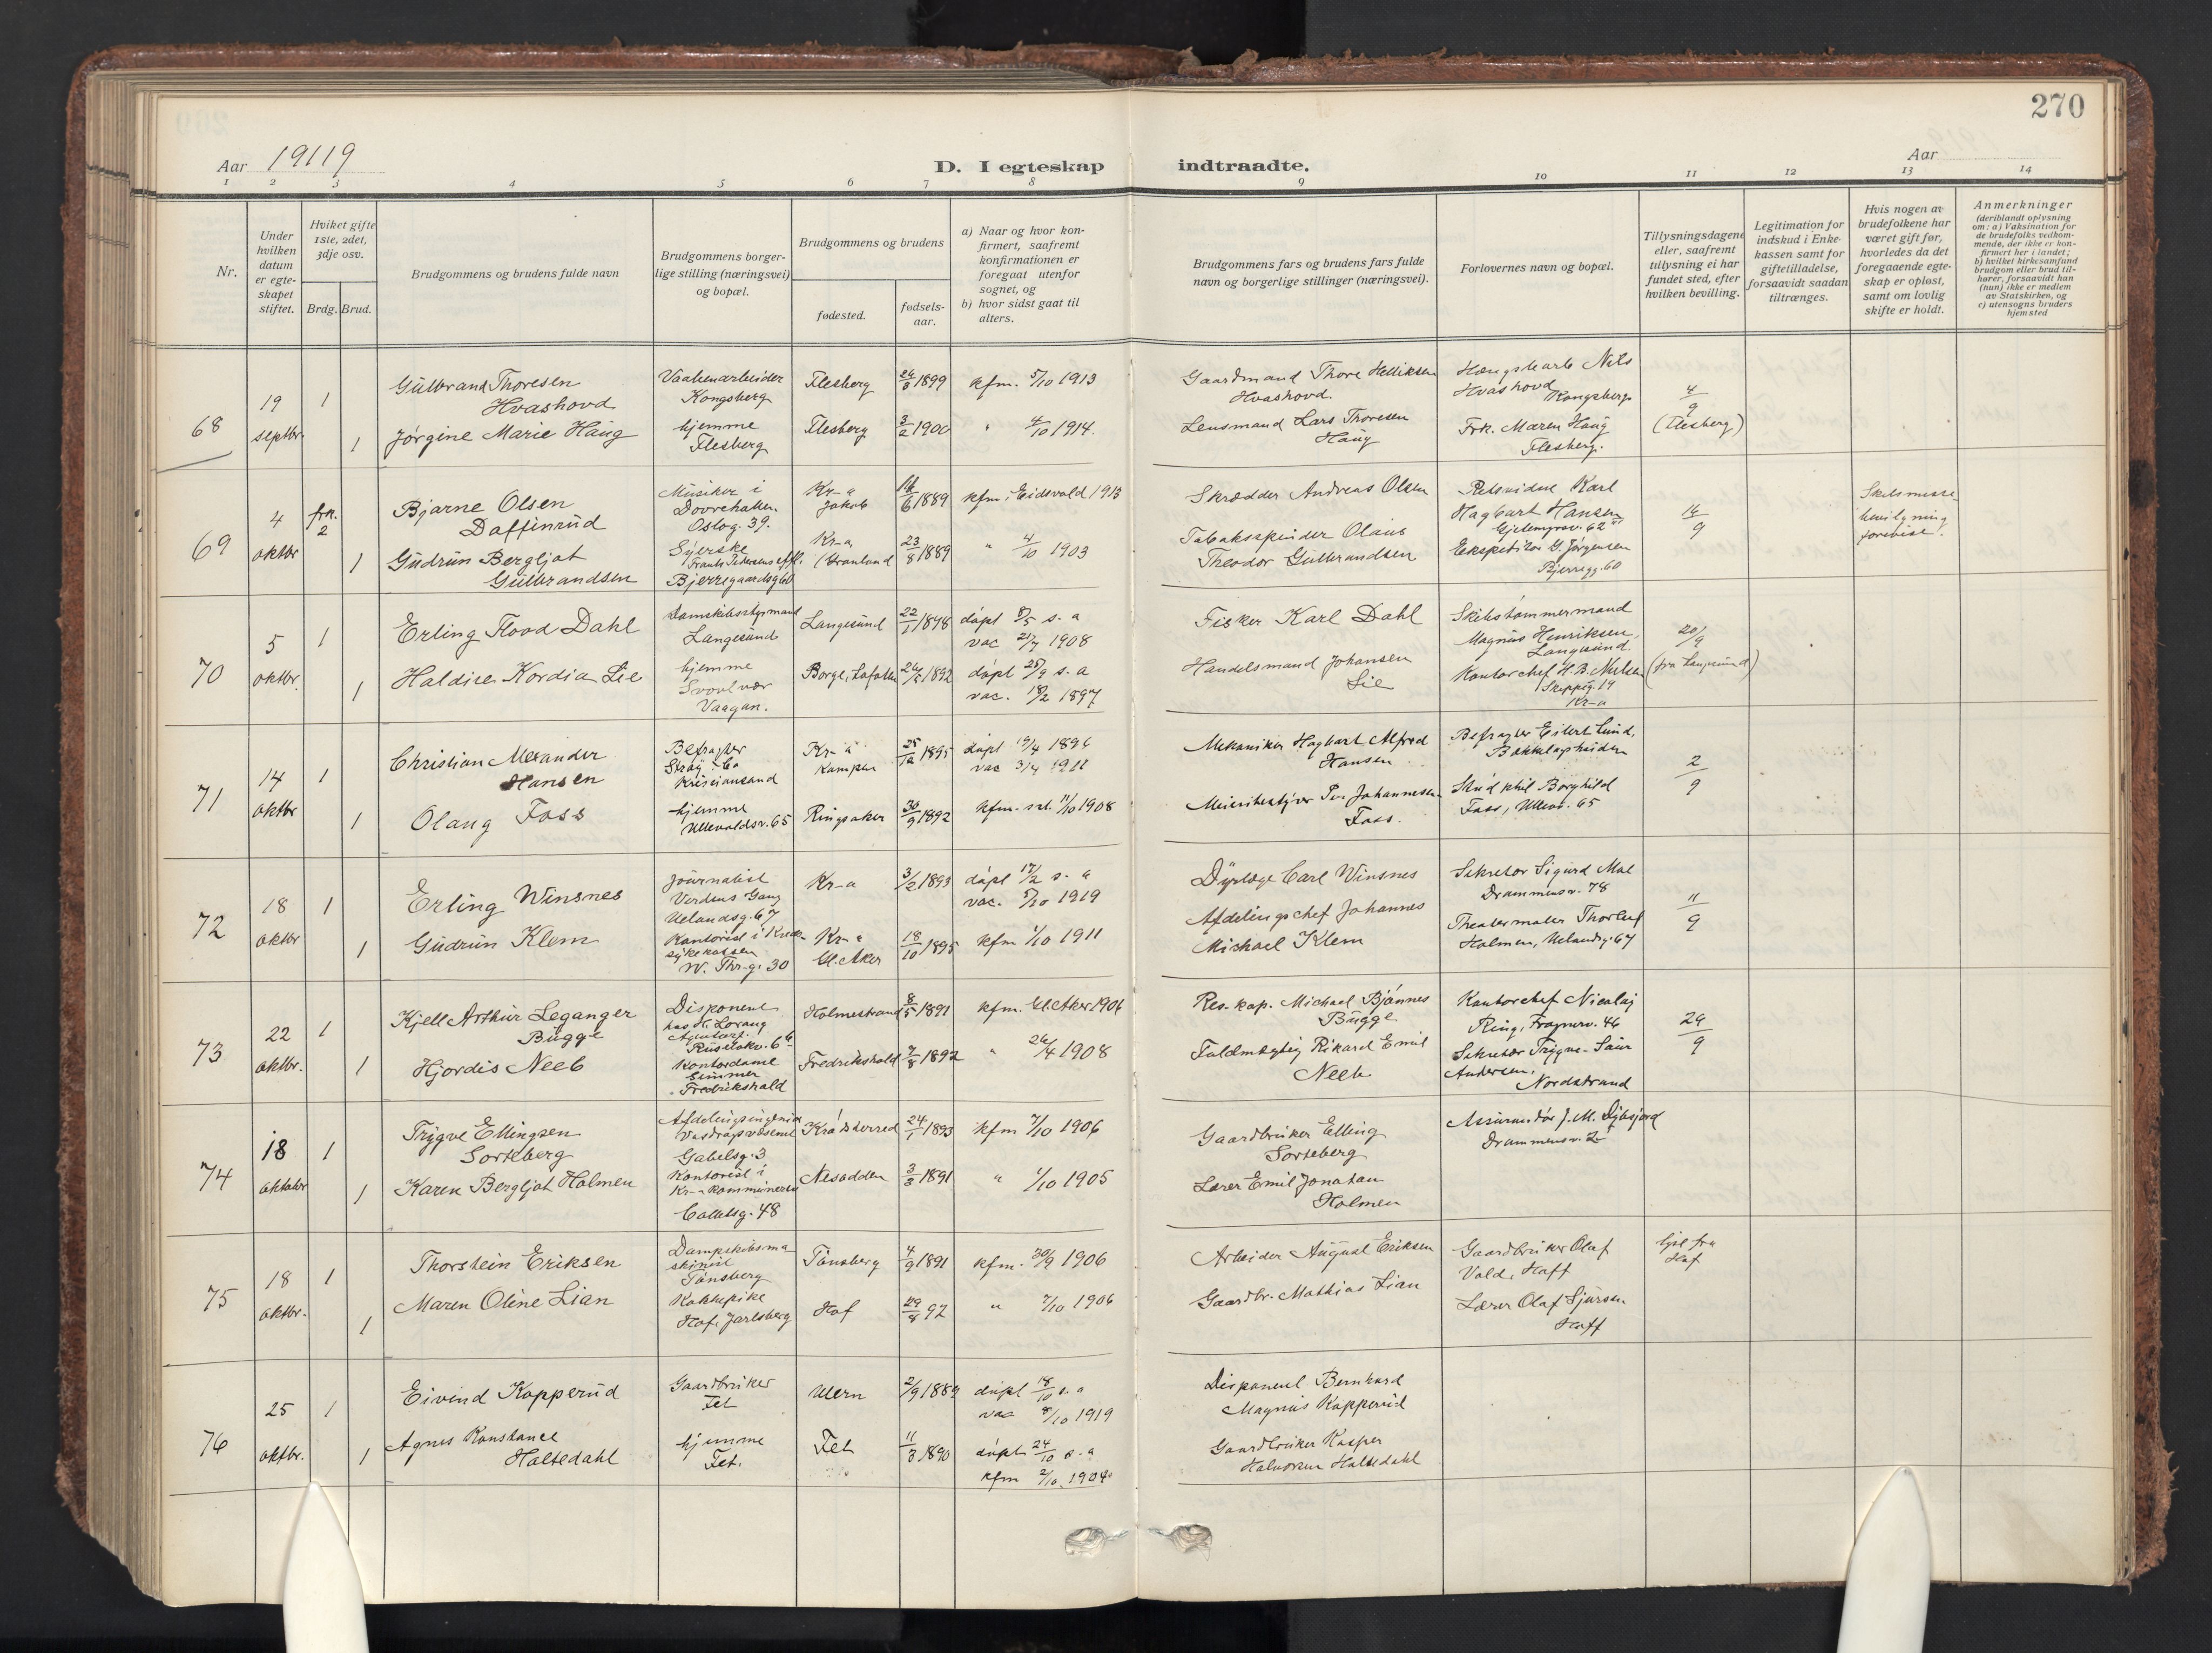 270
Aar 19119
D. I egteskap indtraadte.
Aar
1 2 3 4 5 6 7 8 9 10 11 12 13 14
Nr.
Under
hvilken
datum
er egte-
skapet
stiftet.
Hviket gifte
1ste, 2det,
3dje osv.
Brdg. Brud.
Brudgommens og brudens fulde navn
Brudgommens borger-
lige stilling (næringsvei)
og bopæl.
Brudgommens og brudens
fødested.
fødsels-
aar.
a) Naar og hvor kon-
firmert, saafremt
konfirmationen er
foregaat utenfor
sognet, og
b) hvor sidst gaat til
alters.
Brudgommens fars og brudens fars fulde
navn og borgerlige stillinger (næringsvei).
Forlovernes navn og bopæl.
Tillysningsdagene
eller, saafremt
tillysning ei har
fundet sted, efter
hvilken bevilling.
Legitimation for
indskud i Enke-
kassen samt for
giftetilladelse,
forsaavidt saadan
tiltrænges.
Hvis nogen av
brudefolkene har
været gift før,
hvorledes da det
foregaaende egte-
skap er opløst,
samt om lovlig
skifte er holdt.
Anmerkninger
(deriblandt oplysning
om: a) Vaksination for
de brudefolks vedkom-
mende, der ikke er kon-
firmert her i landet;
b) hvilket kirkesamfund
brudgom eller brud til-
hører, forsaavidt han
(hun) ikke er medlem
av Statskirken, og
c) utensogns bruders
hjemsted
68
19
septbr.
1
1
Gulbrand Thoresen
Hvashovd
Jørgine Marie Haug
Vaabenarbeider
Kongsberg
hjemme
Flesberg
Flesberg
1899
Flesberg
3/2 1900
kfm. 5/10 1913
" 4/10 1914.
Gaardmand Thore Helliksen
Hvashovd.
Lensmand Lars Thoresen
Haug
Nils
Hvashovd
Kongsberg
Frk. Maren Haug
Flesberg.
4/9
(Flesberg)
69
4
oktbr
frk.
2
1
Bjarne Olsen
Daffinrud
Gudrun Bergljot
Gulbrandsen
Musiker i
Dovrehallen.
Oslog. 39.
Syerske
Bjerregaardsg 60
Kr-a
Jakob
6 1889
Kr-a
(Grønland
23/8 1889
kfm. i Eidsvold 1913
" 4/10 1903
Skrædder Andreas Olsen
Tobaksspinder Olaus
Theodor Gulbrandsen
Karl
Hagbart Hansen
Ekspeditør G. Jørgensen
Bjerregg. 60
16/9
Skilsmisse
bevilgning
forevist.
70
5
oktbr.
1
1
Erling Flood Dahl
Haldise Kordia Lie
Langesund
hjemme
Svolvær
Vaagan.
Langesund
22/1 1898
Borge, Lofoten
1892
døpt 8/5 s. a
vac 21/7 1908
døpt 25/9 s. a
vac. 18/2 1897
Fisker Karl Dahl
Handelsmand Johansen
Lie
Skibstømmermand
Magnus Henriksen,
Langesund.
Kontorchef H. B. Nielsen
Skippg. 19
Kr-a
20/9
(fra Langesund)
71
14
oktbr
1
1
Christian Alexander
Hansen
Olaug Foss
Befragter
Strøy & Co
Kristiansand
hjemme
Ullevoldsv. 65
Kr-a
Kampen
25/12 1895
Ringsaker
30/9 1892
døpt 19/4 1896
vac 3/4 1911
kfm. 11/10 1908
Mekaniker Hagbart Alfred
Hansen
Meieribestyrer Per Johannesen
Foss.
Befragter Eilert Lund,
Bækkelagshøiden
Stud. phil Borghild
Foss, Ullevv. 65
2/9
72
18
oktbr
1
1
Erling Winsnes
Gudrun Klem
Journalist
Verdens Gang
Uelandsg. 67
Kontorist i Kreds-
sykekassen
W. Thr-g. 30
Kr-a
3/2 1893
Kr-a
Gl. Aker
18/10 1895
døpt 17/2 s. a
vac. 5/10 1919
kfm 1/10 1911
Dyrlæge Carl Winsnes
Afdelingschef Johannes
Michael Klem
Sekretær Sigurd Moe
Drammensv. 78
Theatermaler Thorleif
Holmen, Uelandsg. 67
11/9
73
22
oktbr.
1
1
Kjell Arthur Leganger
Bugge
Hjordis Neeb
Disponent
Kontordame
Fredrikshald
Holmestrand
8/5 1891
Fredrikshald
7/8 1892
kfm. Gl. Aker 1906
" 26/4 1908
Res. kap. Michael Bjønnes
Bugge
Fuldmægtig Rikard Emil
Neeb
Kontorchef Nicolaj
Ring, Frognerv. 46
Sekretær Trygve-Saur
Andersen,
Nordstrand
29/9
74
18
oktober
1
1
Trygve Ellingsen
Sorteberg
Karen Bergljot Holmen
Afdelingsingeniør
Vasdragsvæsenet
Gabelsg. 3
Kontorist i
Kr-a Kommunerev
Colletsg. 48
Krødsherred
24/1 1893
Nesodden
3/3 1891
kfm 7/10 1906
" 1/10 1905
Gaardbruker Elling
Sorteberg
Lærer Emil Jonatan
Holmen
Assurandør J. M. Dybsjord
Drammensv. 2
75
18
oktbr.
1
1
Thorstein Eriksen
Maren Oline Lian
Dampskibsma-
skinist
Tønsberg
Kokkepike
Hof, Jarlsberg
Tønsberg
4/9 1891
Hof
29/8 92
kfm. 30/9 1906
" 7/10 1906
Arbeider August Eriksen
Gaardbr. Mathias Lian
Gaardbruker Olaf
Vold, Hoff
Lærer Olaf Sjursen
Hoff
lyst fra
Hof
76
25
oktbr.
1
1
Eivind Kopperud
Agnes Konstance
Holtedahl
Gaardbruker
Fet
hjemme
Fet.
Ullern
2/9 1889
Fet
11/3 1890
døpt 18/10 s. a
vac 8/10 1919
døpt 24/10 s. a
kfm 2/10. 1904
Disponent Bernhard
Magnus Kopperud
Gaardbruker Kasper
Halvorsen Holtedahl